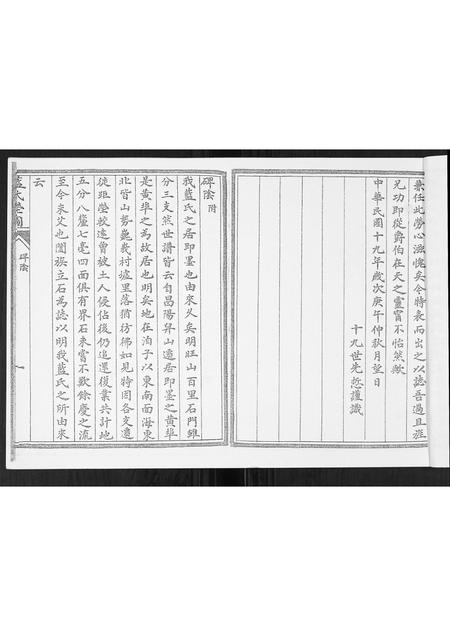 棄任此勞心滋愧矣今特表而出之以誌吾過且彰
兄功即從爵伯在天之靈寧不怡然歟
中華民國十九年歲次庚午仲秋月望日
十九世先愸謹識
碑陰附
我藍氏之居即墨也由來久矣明旺山百里石門雖
分三支然世譜皆云自昌陽舁山遷居即墨之黃埠
是黃埠之為故居也明矣地在泊子以東南面海東
北皆山勢巍峩村墟里落猶彷彿如見特因各支遠
徙距塋較遠曾被土人侵佔後仍追還復業共計地
五分八釐七毫四面俱有界石來嘗不歎餘慶之流
至今未艾也闔族立石為誌以明我藍氏之所由來
云
藍氏塋圖
碑陰
一